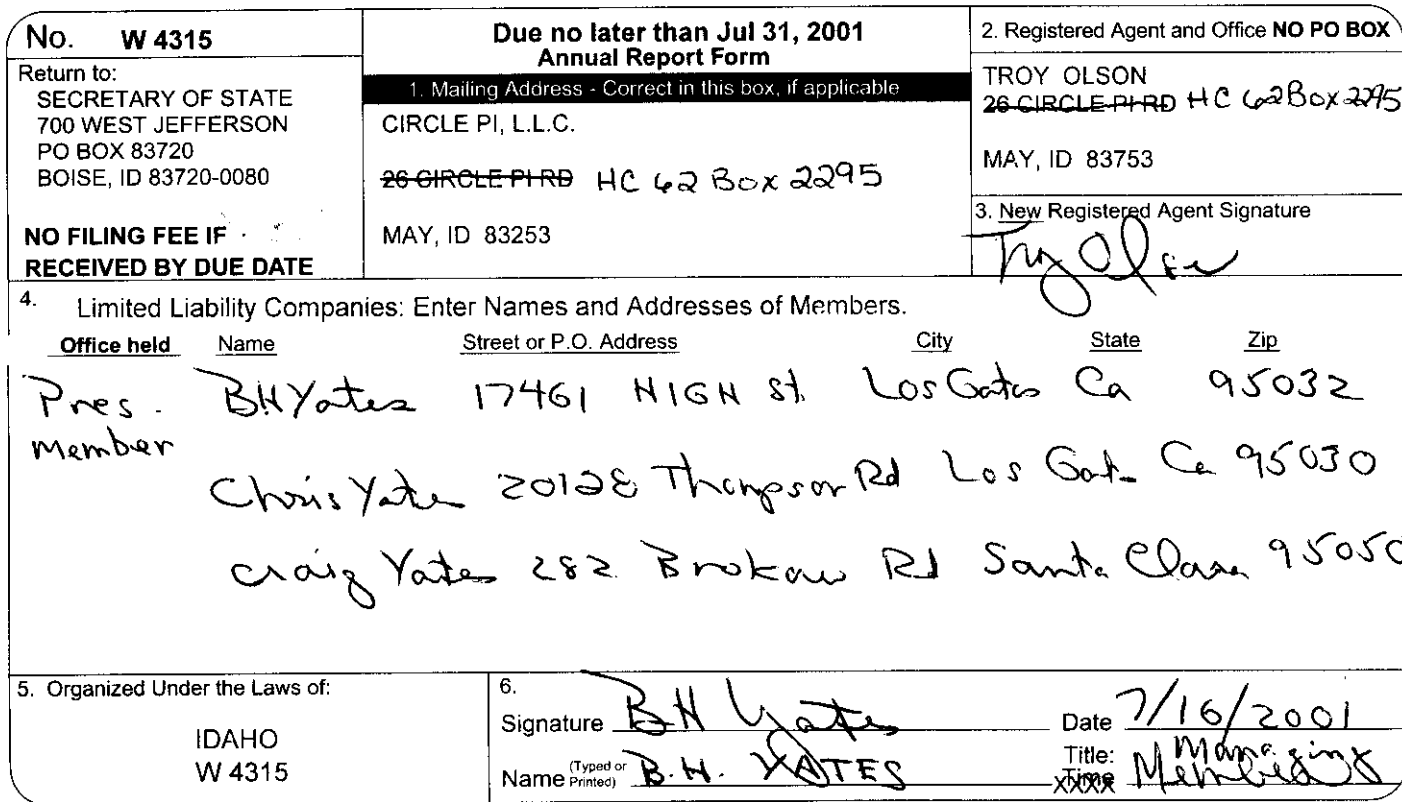 No. W 4315
Return to:
SECRETARY OF STATE
700 WEST JEFFERSON
PO BOX 83720
BOISE, ID 83720-0080
NO FILING FEE IF
RECEIVED BY DUE DATE
Due no later than Jul 31, 2001
Annual Report Form
1. Mailing Address - Correct in this box, if applicable
CIRCLE PI, L.L.C.
26 CIRCLE PI RD HC 62 Box 2295
MAY, ID 83253
2. Registered Agent and Office NO PO BOX
TROY OLSON
26 CIRCLE PI RD HC 62 Box 2295
MAY, ID 83753
3. New Registered Agent Signature
Troy Olson
4. Limited Liability Companies: Enter Names and Addresses of Members.
Office held Name Street or P.O. Address City State Zip
Pres. BH Yates 17461 HIGH St. Los Gatos Ca 95032
Member
Chris Yates 20128 Thompson Rd Los Gatos Ca 95030
Craig Yates 282 Brokaw Rd Santa Clara 95050
5. Organized Under the Laws of:
IDAHO
W 4315
6.
Signature BH Yates Date 7/16/2001
Name (Typed or Printed) B.H. YATES Title: Managing Member